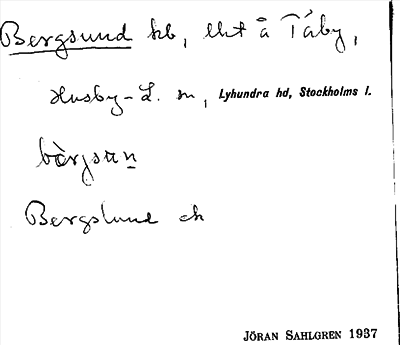 Bergsund hb, lht å Täby,
Husby-L. sn, Lyhundra hd, Stockholms l.
bàrgsun
Bergslund ek
JÖRAN SAHLGREN 1937